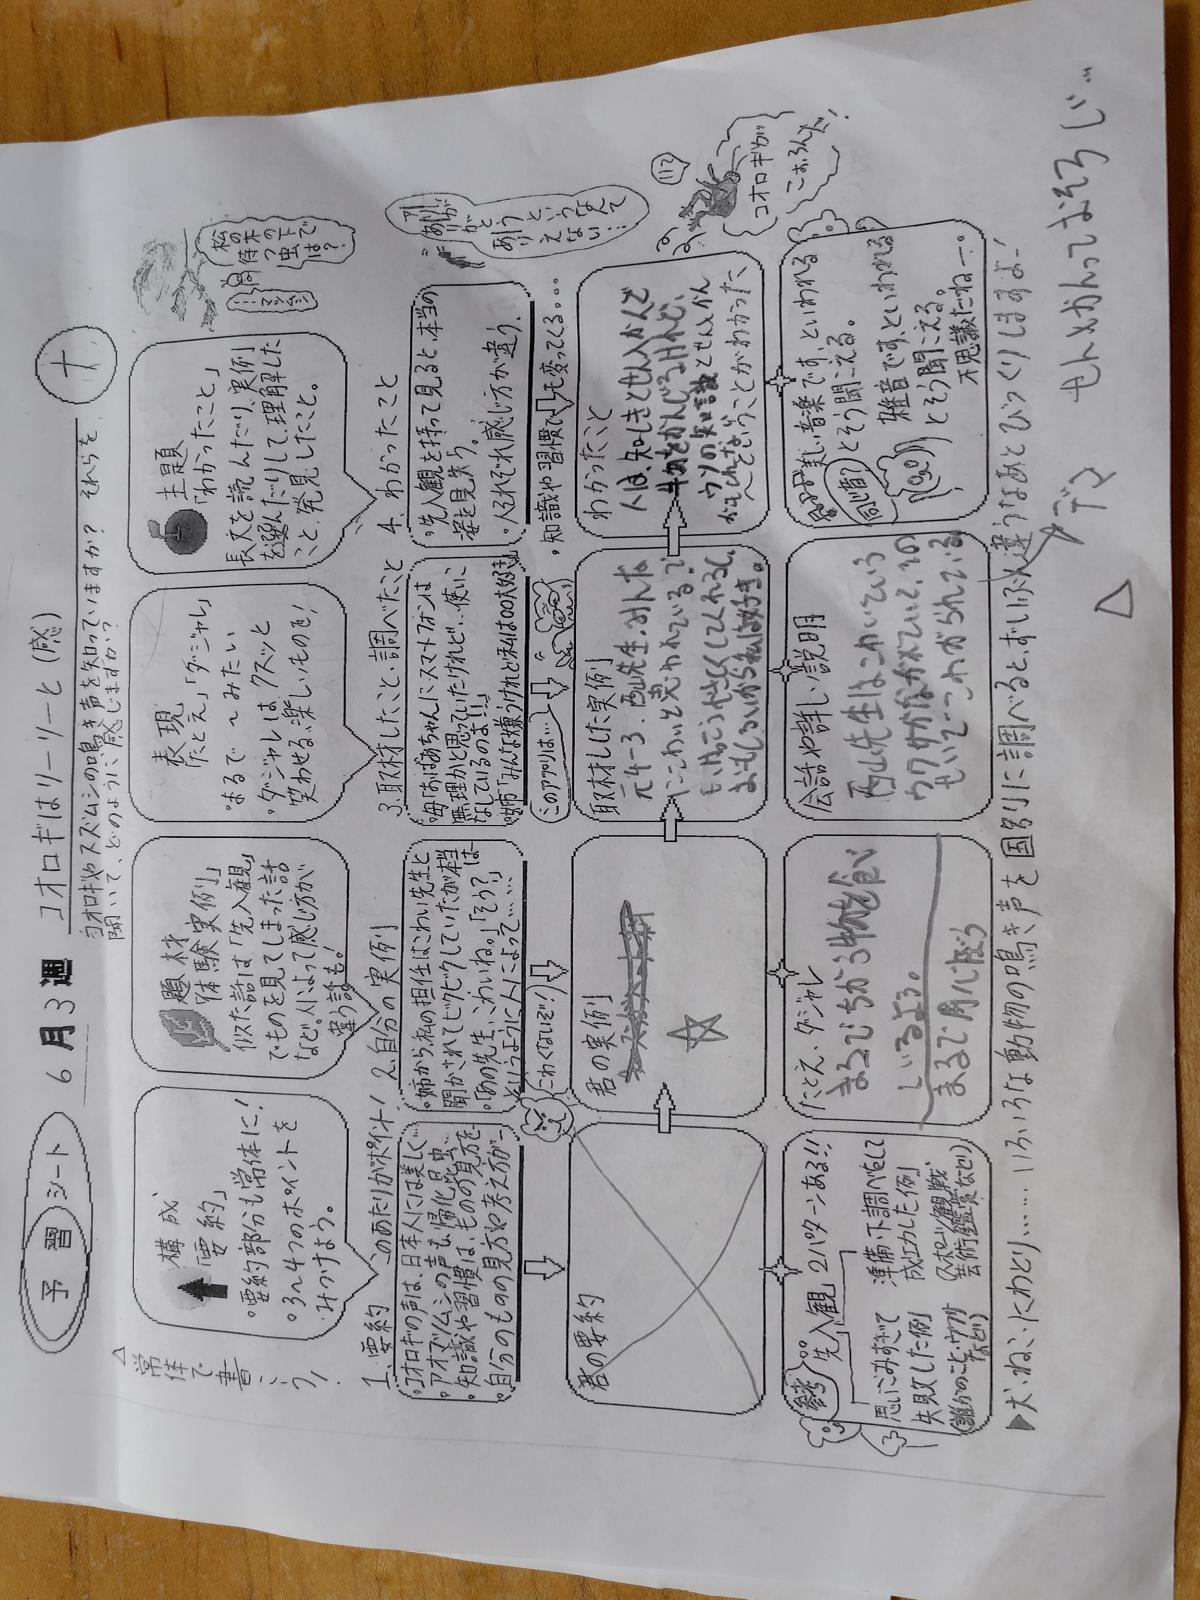 予習シート
6月3週 コオロギはリーリーと(感)
コオロギやスズムシの鳴き声を知っていますか? それらを
聞いて、どのように感じますか?
ナ
常体で書こう!
構成
「要約」
・要約部分も常体に!
・3〜4つのポイントを
みつけよう。
題材
「体験実例」
似た話は「先入観」
でものを見てしまった話
など。人によって感じ方が
違う話も。
表現
「たとえ」「ダジャレ」
・まるで〜みたい
・ダジャレは、クスッと
笑わせる、楽しいものを!
主題
「わかったこと」
長文を読んだり、実例
を選んだりして、理解した
こと、発見したこと。
松の木の下で
待つ虫
では?
1.要約 このあたりがポイント!
・コオロギの声は、日本人には美しく…
・アオマツムシの声も、帰化昆虫…
・知識や習慣は、ものの見方を…
・自分のもの見方や考え方が…
2.自分の実例
・姉から、私の担任はこわい先生と
聞かされてビクビクしていたが本当は
・「あの先生、こわいね。」「そう?」
というように、人によって……
こわくないぞ!
3.取材したこと・調べたこと
・母「おばあちゃんにスマートフォンは
無理かと思っていたけれど…使いこ
なしているのよ!!」
・姉「みんな嫌うけれど私は○○大好き」
このアプリは…
4.わかったこと
・先入観を持って見ると、本当の
姿を見失う。
・人それぞれ感じ方が違う。
・知識や習慣でも変ってくる。…
ありが
とう
君の要約
君の実例
☆
取材した実例
元4-3.西山先生.みんな
にこわいと思われているで
もけっこうやさしくしてくれるし
おもしろいから私は好き。
わかったこと
人は、知しきとせん入かんで
ウソの知識とせん入かん
ということがわかった
参考 先入観 2パターンある!!
思いこみすぎて
失敗した例
(誰かのこと、ウワサ
など)
準備・下調べをして
成功した例
(スポーツ観戦
芸術鑑賞など)
たとえ・ダジャレ
まるでちがう物を食べて
いるよう。
会話や詳しい説明
西山先生はこわいという
ウワサがながれていて、
美しい音楽です、といわれる
とそう聞こえる。
同じ音?
雑音です、といわれる
とそう聞こえる。
不思議だね…。
コオロギが
こおろんだ!
▶犬、ねこ、にわとり、……いろいろな動物の鳴き声を国別に調べると、ずいぶん違うなあとびっくりしますよ!
△
デマ
せん入かんっておそろじ…